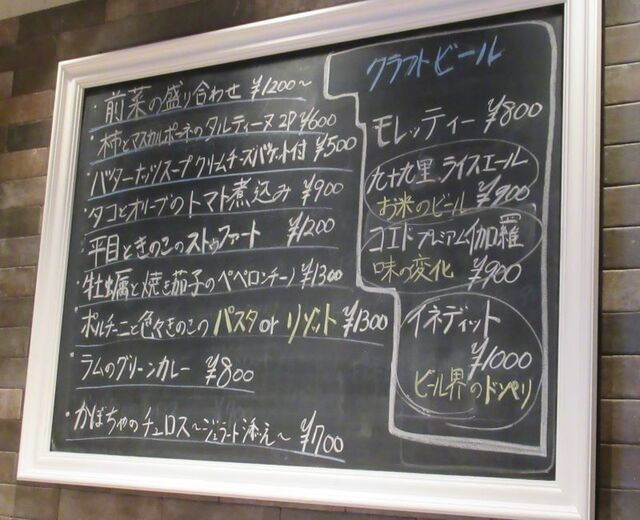 ・前菜の盛り合わせ ¥1200～
・柿とマスカルポーネのタルティーヌ 2P ¥600
・バターナッツスープ クリームチーズバゲット付 ¥500
・タコとオリーブのトマト煮込み ¥900
・平目ときのこのストゥファート ¥1200
・牡蠣と焼き茄子のペペロンチーノ ¥1300
・ポルチーニと色々きのこの パスタ or リゾット ¥1300
・ラムのグリーンカレー ¥800
・かぼちゃのチュロス～ジェラート添え～ ¥700
クラフトビール
モレッティー ¥800
九十九里 ライスエール
お米のビール ¥900
コエド プレミアム伽羅
味の変化 ¥900
イネディット
¥1000
ビール界のドンペリ